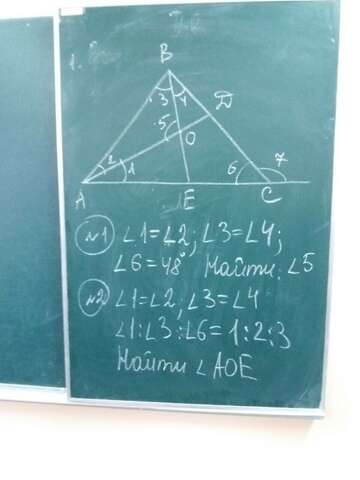 1.
B
D
3 4
5
O
2 1
6 7
A E C
№1 ∠1=∠2; ∠3=∠4;
∠6=48° Найти: ∠5
№2 ∠1=∠2, ∠3=∠4
∠1:∠3:∠6=1:2:3
Найти ∠AOE